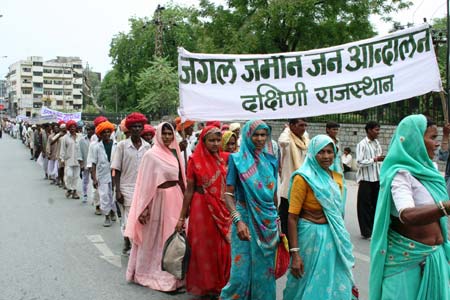 जंगल जमीन जन आन्दोलन
दक्षिणी राजस्थान